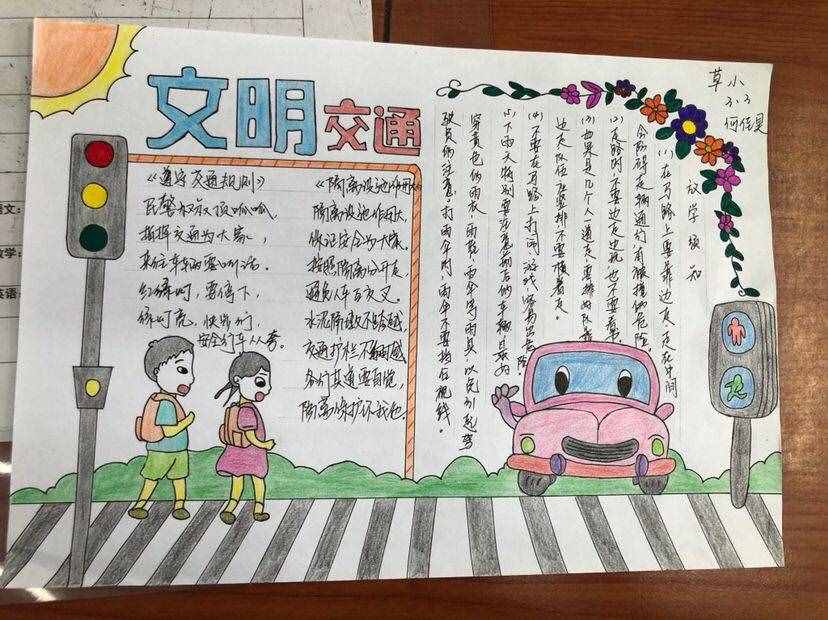 文明交通
《遵守交通规则》
民警叔叔顶呱呱,
指挥交通为大家,
来往车辆要听话。
红绿灯,要停下,
绿灯亮,快步行,
安全行车人人夸。
《隔离设施作用大》
隔离设施作用大,
保证安全为大家。
按照隔离分开走,
避免人车互交叉。
水泥隔墩不跨越,
交通护栏不翻越,
各行其道要自觉,
隔离保护你我他。
草小
3.3
放学须知
(1)在马路上要靠边走,走在中间
会阻碍车辆通行有被撞的危险。
(2)走路时不要边走边玩,也不要看书。
(3)如果是几个人一道走,要排好队靠
边走,队伍应竖排不要横着走。
(4)不要在马路上打闹游戏,容易出危险。
(5)下雨天特别要注意前后的车辆,最好
穿黄色的雨衣、雨披、雨伞等雨具,以免引起驾
驶员的注意。打雨伞时,雨伞不要挡住视线。
语文:
数学:
英语: